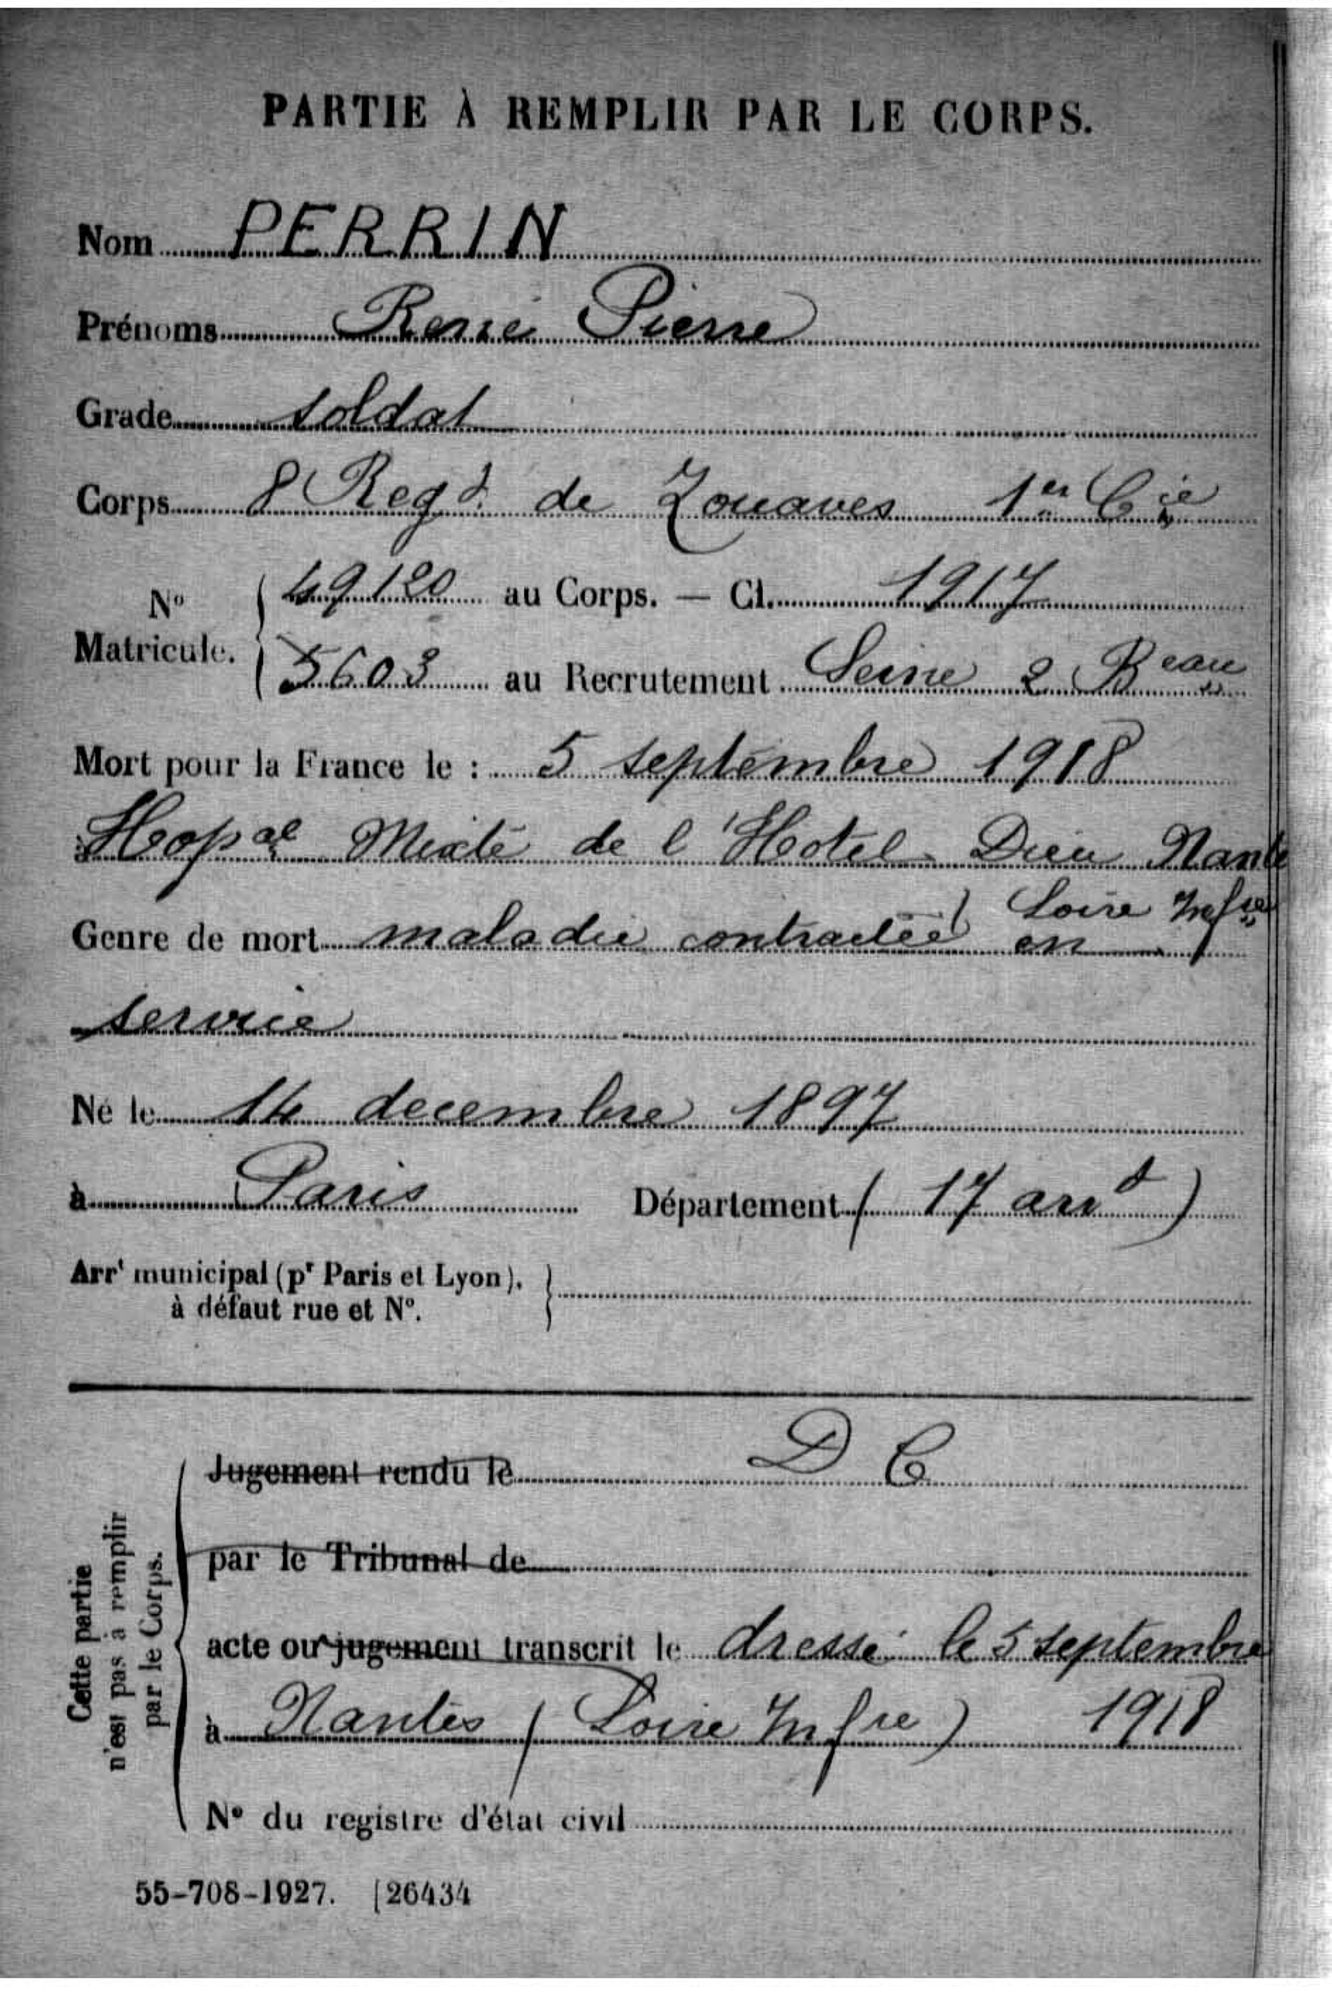 PARTIE À REMPLIR PAR LE CORPS.
Nom PERRIN
Prénoms René Pierre
Grade soldat
Corps 8 Regt de Zouaves 1er Cie
No Matricule. 49120 au Corps. — Cl. 1917
5603 au Recrutement Seine 2 Beau
Mort pour la France le : 5 septembre 1918
à Hopal Mixte de l'Hotel Dieu Nantes
Loire Infre
Genre de mort maladie contractée en
service
Né le 14 decembre 1897
à Paris Département ( 17 arrd )
Arrt municipal (pr Paris et Lyon),
à défaut rue et No.
D C
Jugement rendu le
par le Tribunal de
acte ou jugement transcrit le dressé le 5 septembre
à Nantes ( Loire Infre ) 1918
No du registre d'état civil
Cette partie
n'est pas à remplir
par le Corps.
55-708-1927. [26434